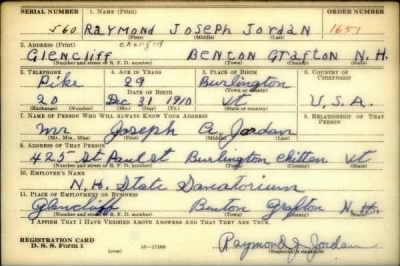 SERIAL NUMBER 1. NAME (Print) ORDER NUMBER
560 RAYMOND JOSEPH JORDAN 1651
(First) (Middle) (Last)
2. ADDRESS (Print) changed
GLENCLIFF BENTON GRAFTON N.H.
(Number and street or R. F. D. number) (Town) (County) (State)
3. TELEPHONE 4. AGE IN YEARS 5. PLACE OF BIRTH 6. COUNTRY OF CITIZENSHIP
Pike 29 Burlington
DATE OF BIRTH (Town or county)
20 Dec 31 1910 Vt U.S.A.
(Exchange) (Number) (Mo.) (Day) (Yr.) (State or country)
7. NAME OF PERSON WHO WILL ALWAYS KNOW YOUR ADDRESS 8. RELATIONSHIP OF THAT PERSON
Mr Joseph A. Jordan
(Mr., Mrs., Miss) (First) (Middle) (Last)
9. ADDRESS OF THAT PERSON
425 St Paul St Burlington Chitten Vt
(Number and street or R. F. D. number) (Town) (County) (State)
10. EMPLOYER'S NAME
N.H. State Sanatorium
11. PLACE OF EMPLOYMENT OR BUSINESS
Glencliff Benton Grafton N.H.
(Number and street or R. F. D. number) (Town) (County) (State)
I AFFIRM THAT I HAVE VERIFIED ABOVE ANSWERS AND THAT THEY ARE TRUE.
REGISTRATION CARD
D. S. S. Form 1 (over) 16-17105 Raymond J. Jordan